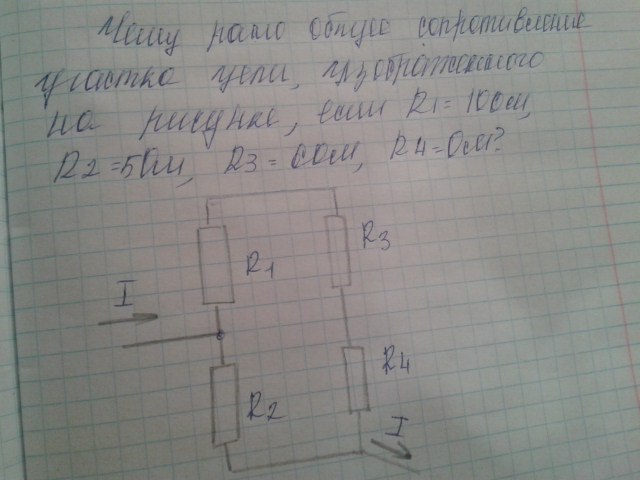 Чему равно общее сопротивление
участка цепи, изображенного
на рисунке, если R1=10ом,
R2=5Ом, R3= 6Ом, R4=Ом?
R1
R3
I
R4
R2
I